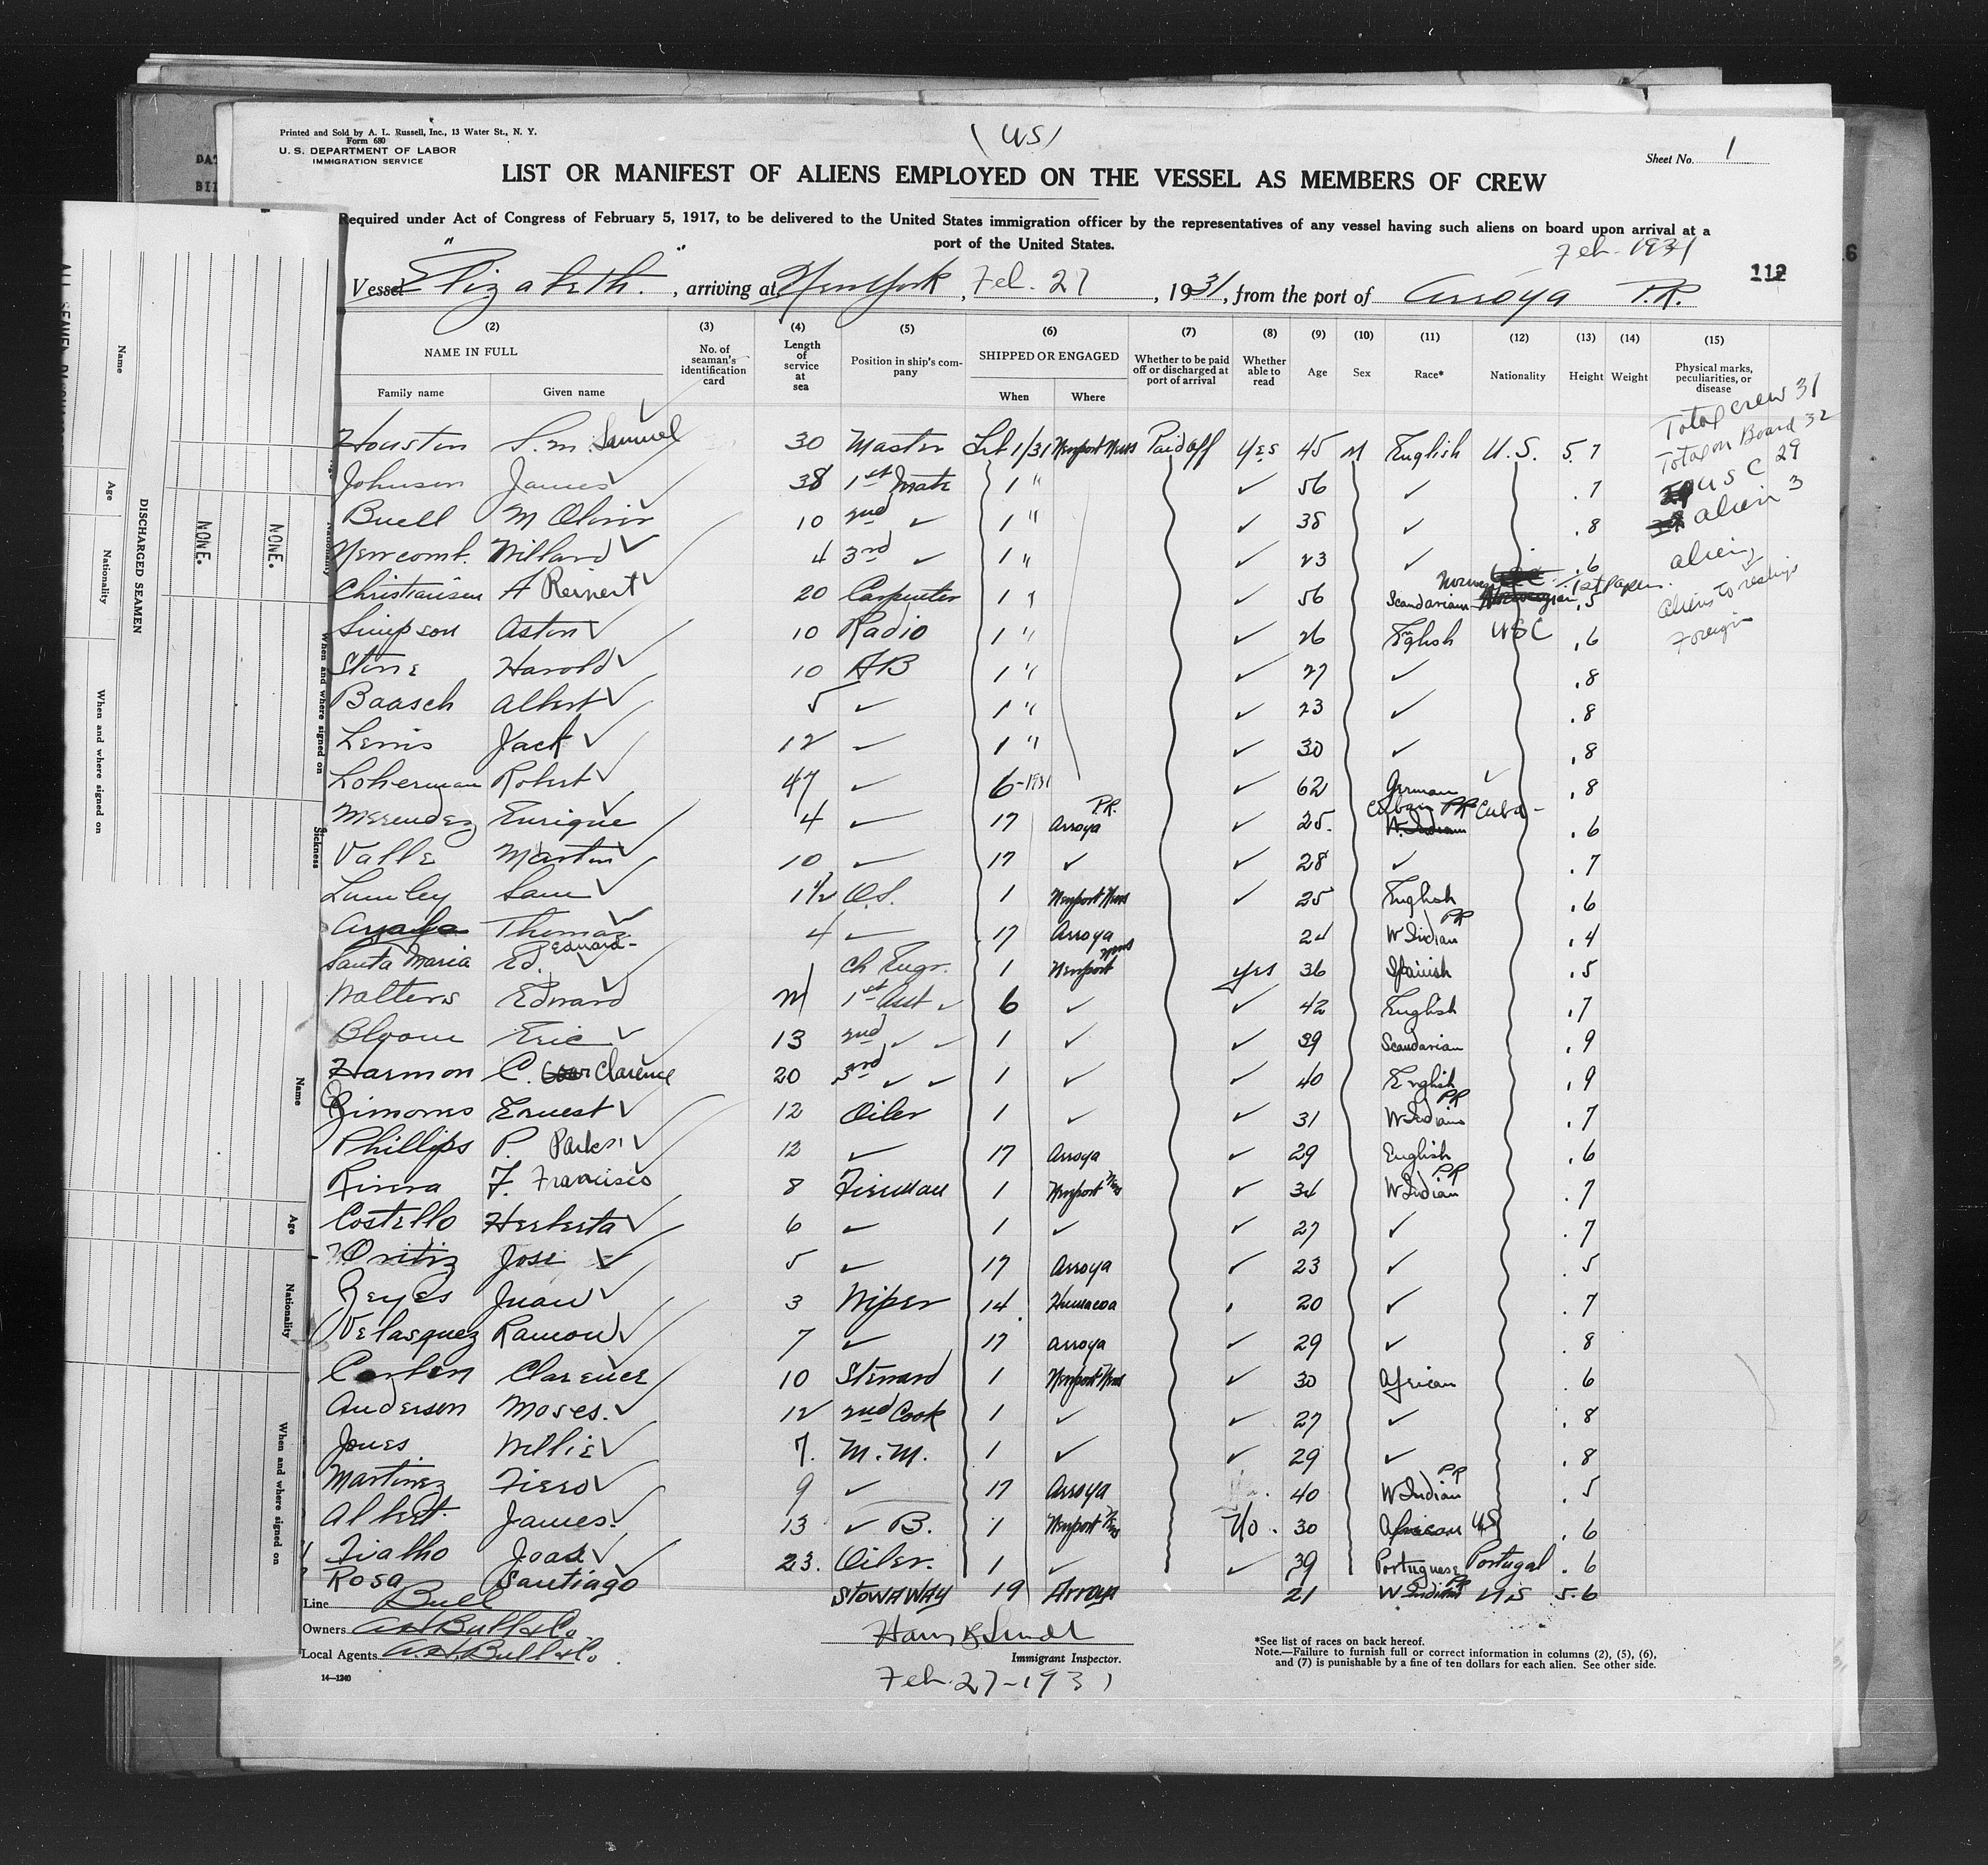 Printed and Sold by A. L. Russell, Inc., 13 Water St., N. Y.
Form 680
U. S. DEPARTMENT OF LABOR
IMMIGRATION SERVICE
(US)
Sheet No. 1
LIST OR MANIFEST OF ALIENS EMPLOYED ON THE VESSEL AS MEMBERS OF CREW
Required under Act of Congress of February 5, 1917, to be delivered to the United States immigration officer by the representatives of any vessel having such aliens on board upon arrival at a
port of the United States.
Feb-1931
112
Vessel "Elizabeth", arriving at New York, Feb. 27, 1931, from the port of Arroya P.R.
(2) (3) (4) (5) (6) (7) (8) (9) (10) (11) (12) (13) (14) (15)
NAME IN FULL No. of seaman's identification card Length of service at sea Position in ship's company SHIPPED OR ENGAGED Whether to be paid off or discharged at port of arrival Whether able to read Age Sex Race* Nationality Height Weight Physical marks, peculiarities, or disease
Family name Given name When Where
Total crew 31
Total on Board 32
USC 29
alien 3
aliens
Aliens to reship
Foreign
Houston S.M. Samuel 30 Master Feb 1/31 Newport News Paid off Yes 45 M English U.S. 5.7
Johnson James 38 1st Mate 1 " 56 .7
Buell M Oliver 10 2nd 1 " 38 .8
Newcomb. Willard 4 3rd 1 " 23 .6
Christiansen A Reinert 20 Carpenter 1 " 56 Scandavian 1st papers .5
Simpson Aston 10 Radio 1 " 26 English USC .6
Stine Harold 10 AB 1 " 27 .8
Baasch Albert 5 1 " 23 .8
Lewis Jack 12 1 " 30 .8
Loherman Robert 47 6-1931 62 German .8
Merendez Enrique 4 17 Arroya P.R. 25. Cuban PR Cuba- W. Indian .6
Valle Martin 10 17 28 .7
Lumley Sam 1½ O.S. 1 Newport News 25 English .6
Ayala Thomas 4 17 Arroya 24 W Indian PR .4
Santa Maria Ed. Eduard- Ch Engr. 1 Newport News yes 36 Spanish .5
Walters Edward 1st Asst 6 42 English .7
Bloom Eric 13 2nd 1 39 Scandavian .9
Harmon C. Clarence 20 3rd 1 40 English .9
Simons Ernest 12 Oiler 1 31 W Indian PR .7
Phillips P. 12 17 Arroya 29 English .6
Rivera F. Francisco 8 Fireman 1 Newport News 34 W Indian PR .7
Costello Herberta 6 1 27 .7
Oritiz Jose 5 17 Arroya 23 .5
Reyes Juan 3 Wiper 14 Humacoa 20 .7
Velasquez Ramon 7 17 Arroya 29 .8
Clarence 10 Steward 1 Newport News 30 African .6
Anderson Moses. 12 2nd Cook 1 27 .8
Jones Willie 7. M.M. 1 29 .8
Martinez Fiero 9 17 Arroya 40 W Indian PR .5
Albert. James. 13 B. 1 Newport News No. 30 African US .6
Fialho Joao 23. Oiler. 1 39 Portuguese Portugal .6
Rosa Santiago STOWAWAY 19 Arroya 21 W Indian PR US 5.6
Line Bull
Owners A.H. Bull & Co.
Local Agents A.H. Bull & Co.
14—1240
Immigrant Inspector.
Feb. 27-1931
*See list of races on back hereof.
Note.—Failure to furnish full or correct information in columns (2), (5), (6),
and (7) is punishable by a fine of ten dollars for each alien. See other side.
DISCHARGED SEAMEN
Name
Age
Nationality
When and where signed on
NONE.
NONE.
Nationality
When and where signed on
Sickness
Name
Age
Nationality
When and where signed on